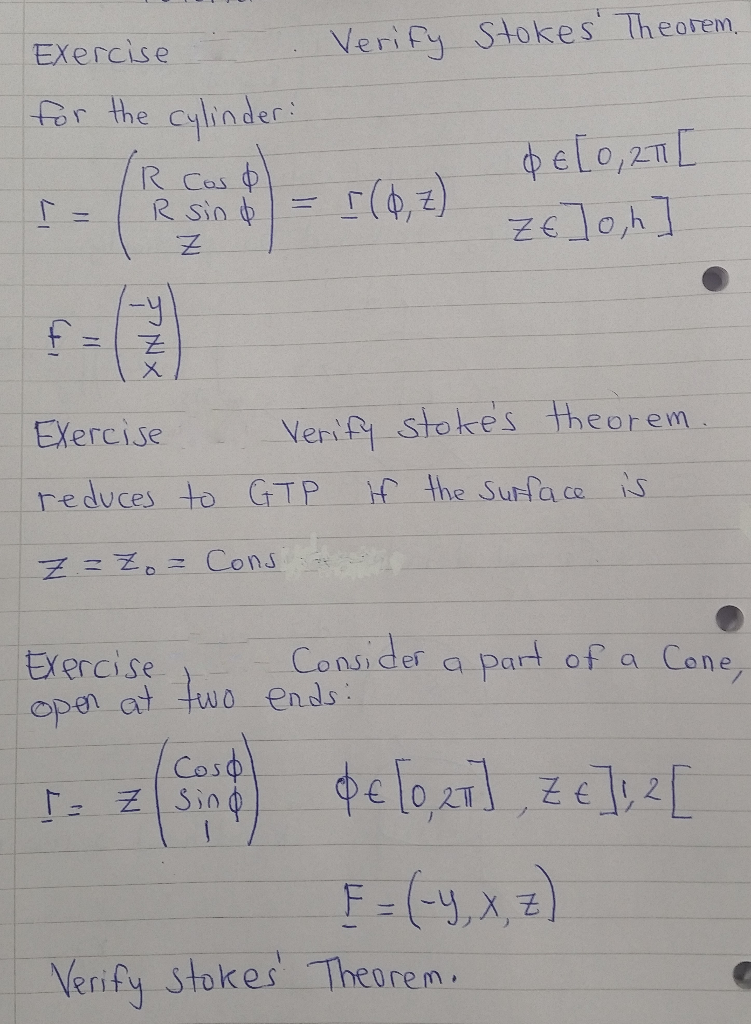 Exercise Verify Stokes' Theorem.
for the cylinder:
r = (R Cos φ R Sin φ z) = r(φ, z) φ ∈ [0, 2π[ z ∈ ]0, h]
f = (-y z x)
Exercise Verify Stoke's theorem.
reduces to GTP if the surface is
z = z₀ = Cons
Exercise, Consider a part of a Cone,
open at two ends:
r = z (Cos φ Sin φ 1) φ ∈ [0, 2π], z ∈ ]1, 2[
F = (-y, x, z)
Verify Stokes' Theorem.